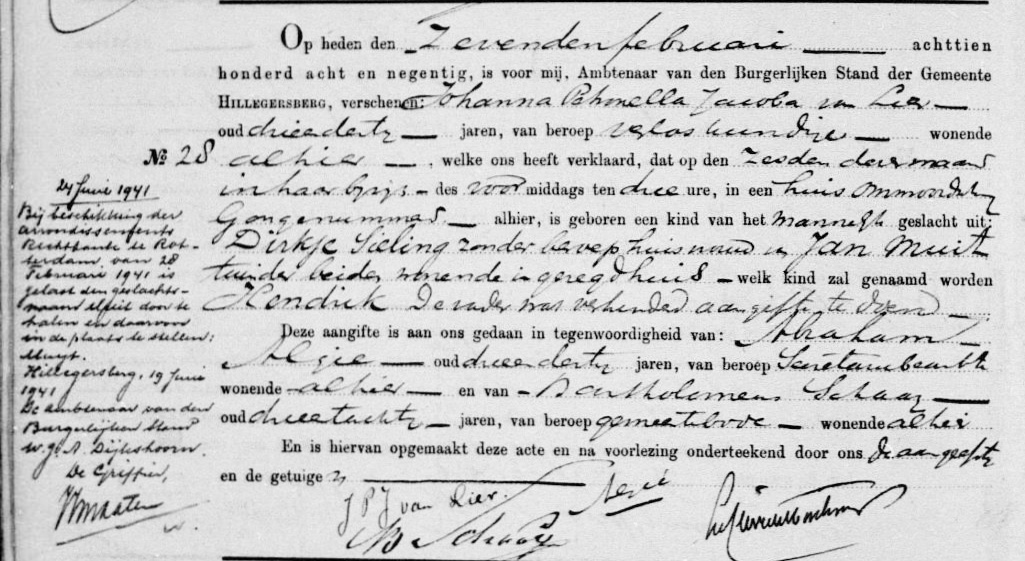 Op heden den Zevenden februari achttien
honderd acht en negentig, is voor mij, Ambtenaar van den Burgerlijken Stand der Gemeente
HILLEGERSBERG, verschenen: Johanna Petronella Jacoba van Lier
oud drieendertig jaren, van beroep verloskundige wonende
No 28 alhier, welke ons heeft verklaard, dat op den zesden dezer maand
in haar bijzijn des voormiddags ten drie ure, in een huis
Ongenummerd alhier, is geboren een kind van het mannelijk geslacht uit:
Dirkje Sieling zonder beroep huisvrouw van Jan Muit
tuinder beiden wonende in gezegd huis welk kind zal genaamd worden
Hendrik De vader was verhinderd aangifte te doen
Deze aangifte is aan ons gedaan in tegenwoordigheid van: Abraham
oud drieendertig jaren, van beroep
wonende alhier en van Bartholomeus Schaay
oud jaren, van beroep gemeentebode wonende alhier
En is hiervan opgemaakt deze acte en na voorlezing onderteekend door ons de aangeefster
en de getuigen
JPJ van Lier.
B Schaay
24 Juni 1941
Bij beschikking der
arrondissements
Rechtbank te Rot-
terdam van 28
Februari 1941 is
gelast den geslachts-
naam Muit door te
halen en daarvoor
in de plaats te stellen:
Muijt.
Hillegersberg, 19 Juni
1941
De ambtenaar van den
Burgerlijken Stand
w.g. A Dijkshoorn.
De Griffier,